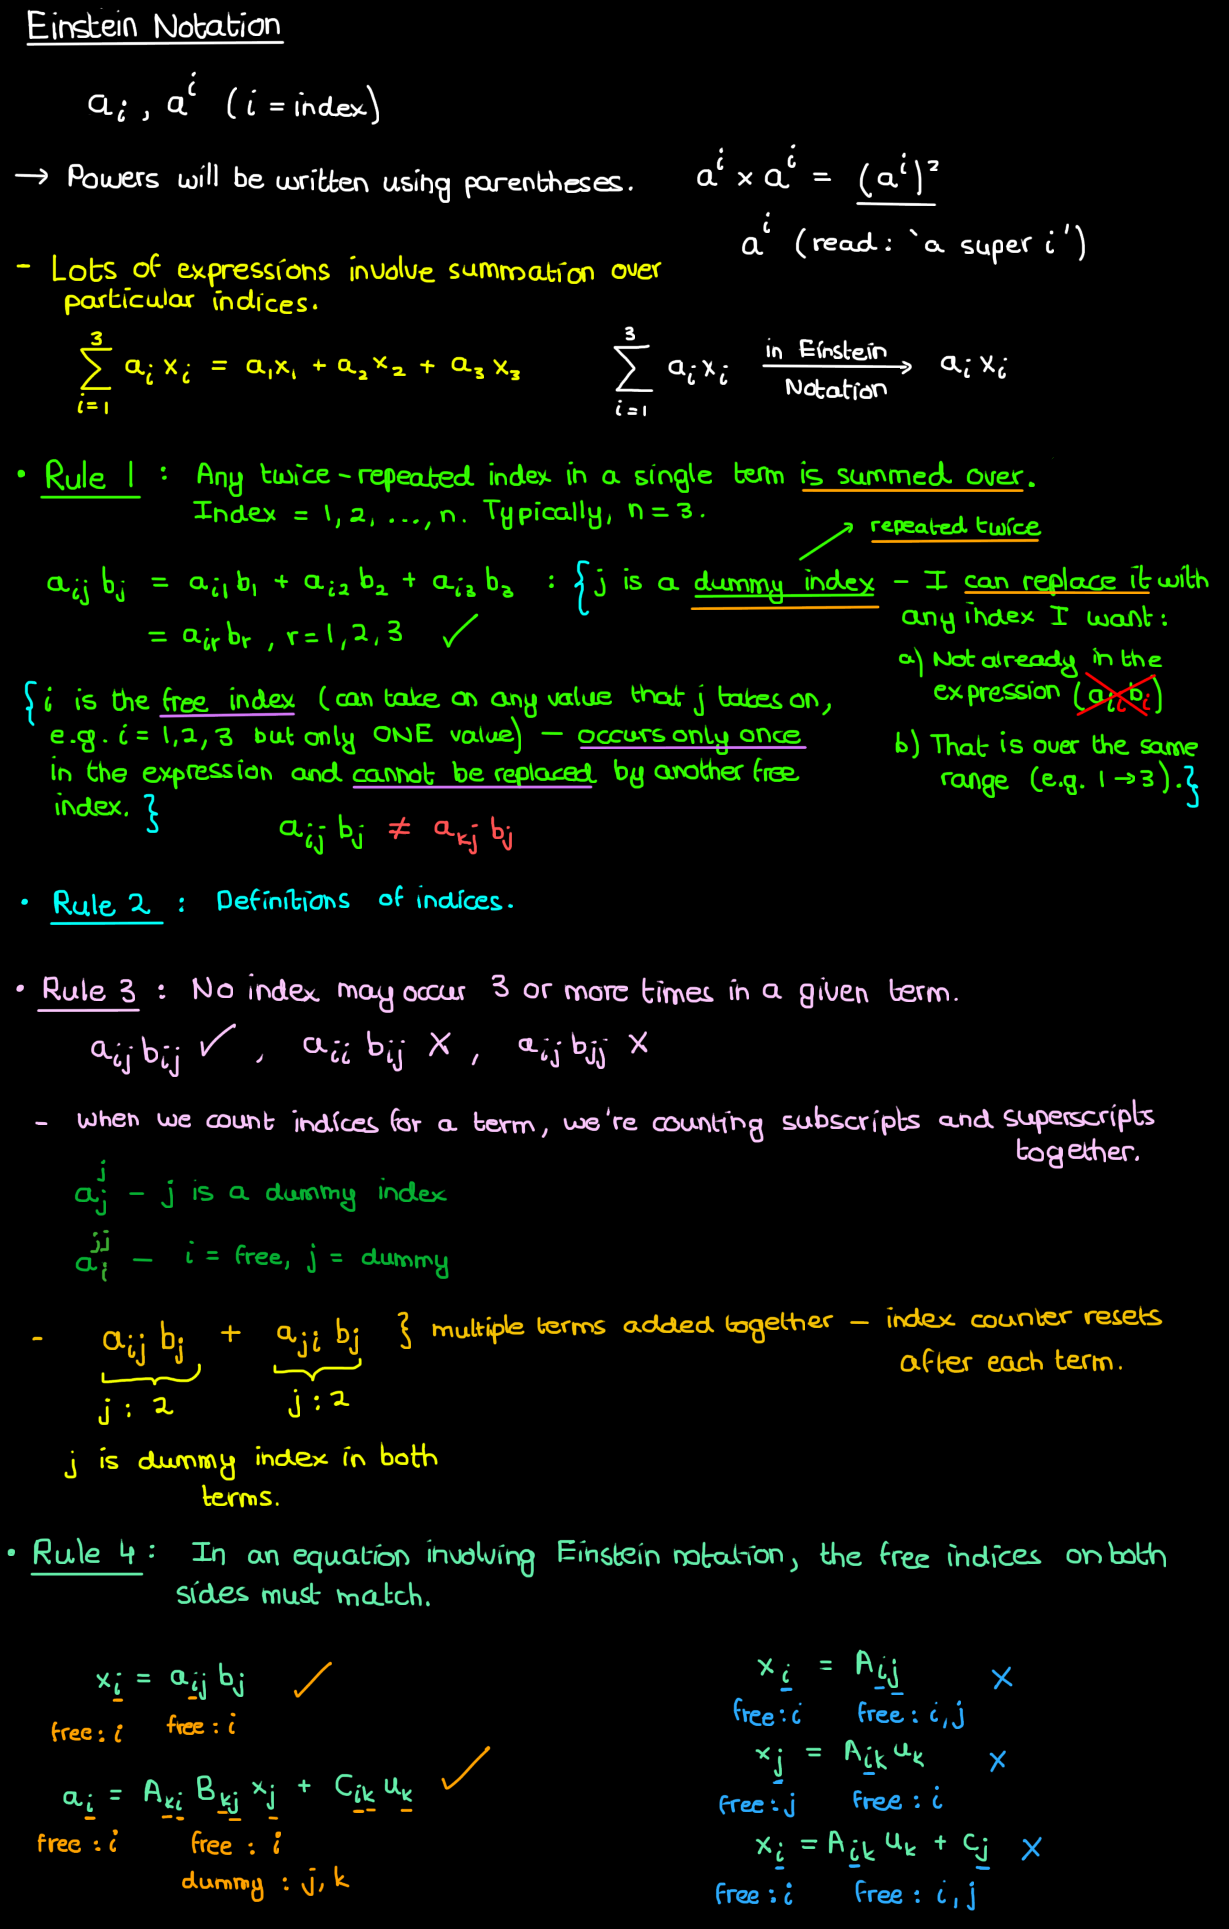 Einstein Notation
aᵢ , aⁱ (i = index)
→ Powers will be written using parentheses. aⁱ × aⁱ = (aⁱ)²
aⁱ (read: `a super i')
- Lots of expressions involve summation over
particular indices.
∑ᵢ₌₁³ aᵢ xᵢ = a₁x₁ + a₂x₂ + a₃x₃
∑ᵢ₌₁³ aᵢxᵢ in Einstein Notation → aᵢ xᵢ
• Rule 1 : Any twice-repeated index in a single term is summed over.
Index = 1, 2, ..., n. Typically, n = 3.
repeated twice
aᵢⱼ bⱼ = aᵢ₁ b₁ + aᵢ₂ b₂ + aᵢ₃ b₃ : { j is a dummy index – I can replace it with
any index I want:
= aᵢᵣ bᵣ , r = 1, 2, 3 ✓
a) Not already in the
expression (aᵢᵢ bᵢ)
b) That is over the same
range (e.g. 1 → 3). }
{ i is the free index (can take on any value that j takes on,
e.g. i = 1, 2, 3 but only ONE value) – occurs only once
in the expression and cannot be replaced by another free
index. }
aᵢⱼ bⱼ ≠ aₖⱼ bⱼ
• Rule 2 : Definitions of indices.
• Rule 3 : No index may occur 3 or more times in a given term.
aᵢⱼ bᵢⱼ ✓ , aᵢᵢ bᵢⱼ X , aᵢⱼ bⱼⱼ X
- When we count indices for a term, we're counting subscripts and superscripts
together.
aⱼʲ – j is a dummy index
aᵢʲʲ – i = free, j = dummy
- aᵢⱼ bⱼ + aⱼᵢ bⱼ } multiple terms added together – index counter resets
after each term.
j : 2 j : 2
j is dummy index in both
terms.
• Rule 4 : In an equation involving Einstein notation, the free indices on both
sides must match.
xᵢ = aᵢⱼ bⱼ ✓
free : i free : i
aᵢ = Aₖᵢ Bₖⱼ xⱼ + Cᵢₖ uₖ ✓
free : i free : i
dummy : j, k
xᵢ = Aᵢⱼ X
free : i free : i, j
xⱼ = Aᵢₖ uₖ X
free : j free : i
xᵢ = Aᵢₖ uₖ + cⱼ X
free : i free : i, j